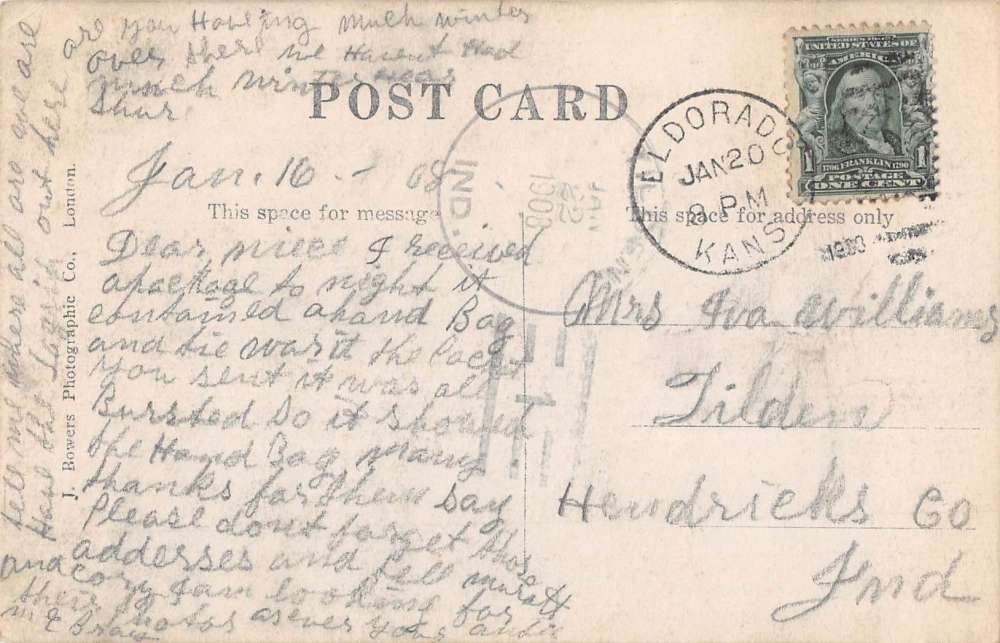 are you Having much winter
over there we Havent Had
much winter Hear
POST CARD
Jan. 16 - 08
This space for message
This space for address only
Dear niece I received
a package to night it
contained a hand Bag
and tie was it the Pacet
you sent it was all
Bursted So it showed
the Hand Bag many
thanks for them say
Please dont forget thos
addersses and tell
and Cory I am looking for
there Fotos as ever your
M E Bray
tell me where all are we are
Have that out here
J. Bowers Photographic Co., London.
ELDORADO
JAN 20
8 P.M
KANS
IND.
JAN
22
1908
1
SERIES 1902
UNITED STATES OF
AMERICA
1706 FRANKLIN 1790
1 1
POSTAGE
ONE CENT
Mrs Iva Williams
Tilden
Hendricks Co
Ind